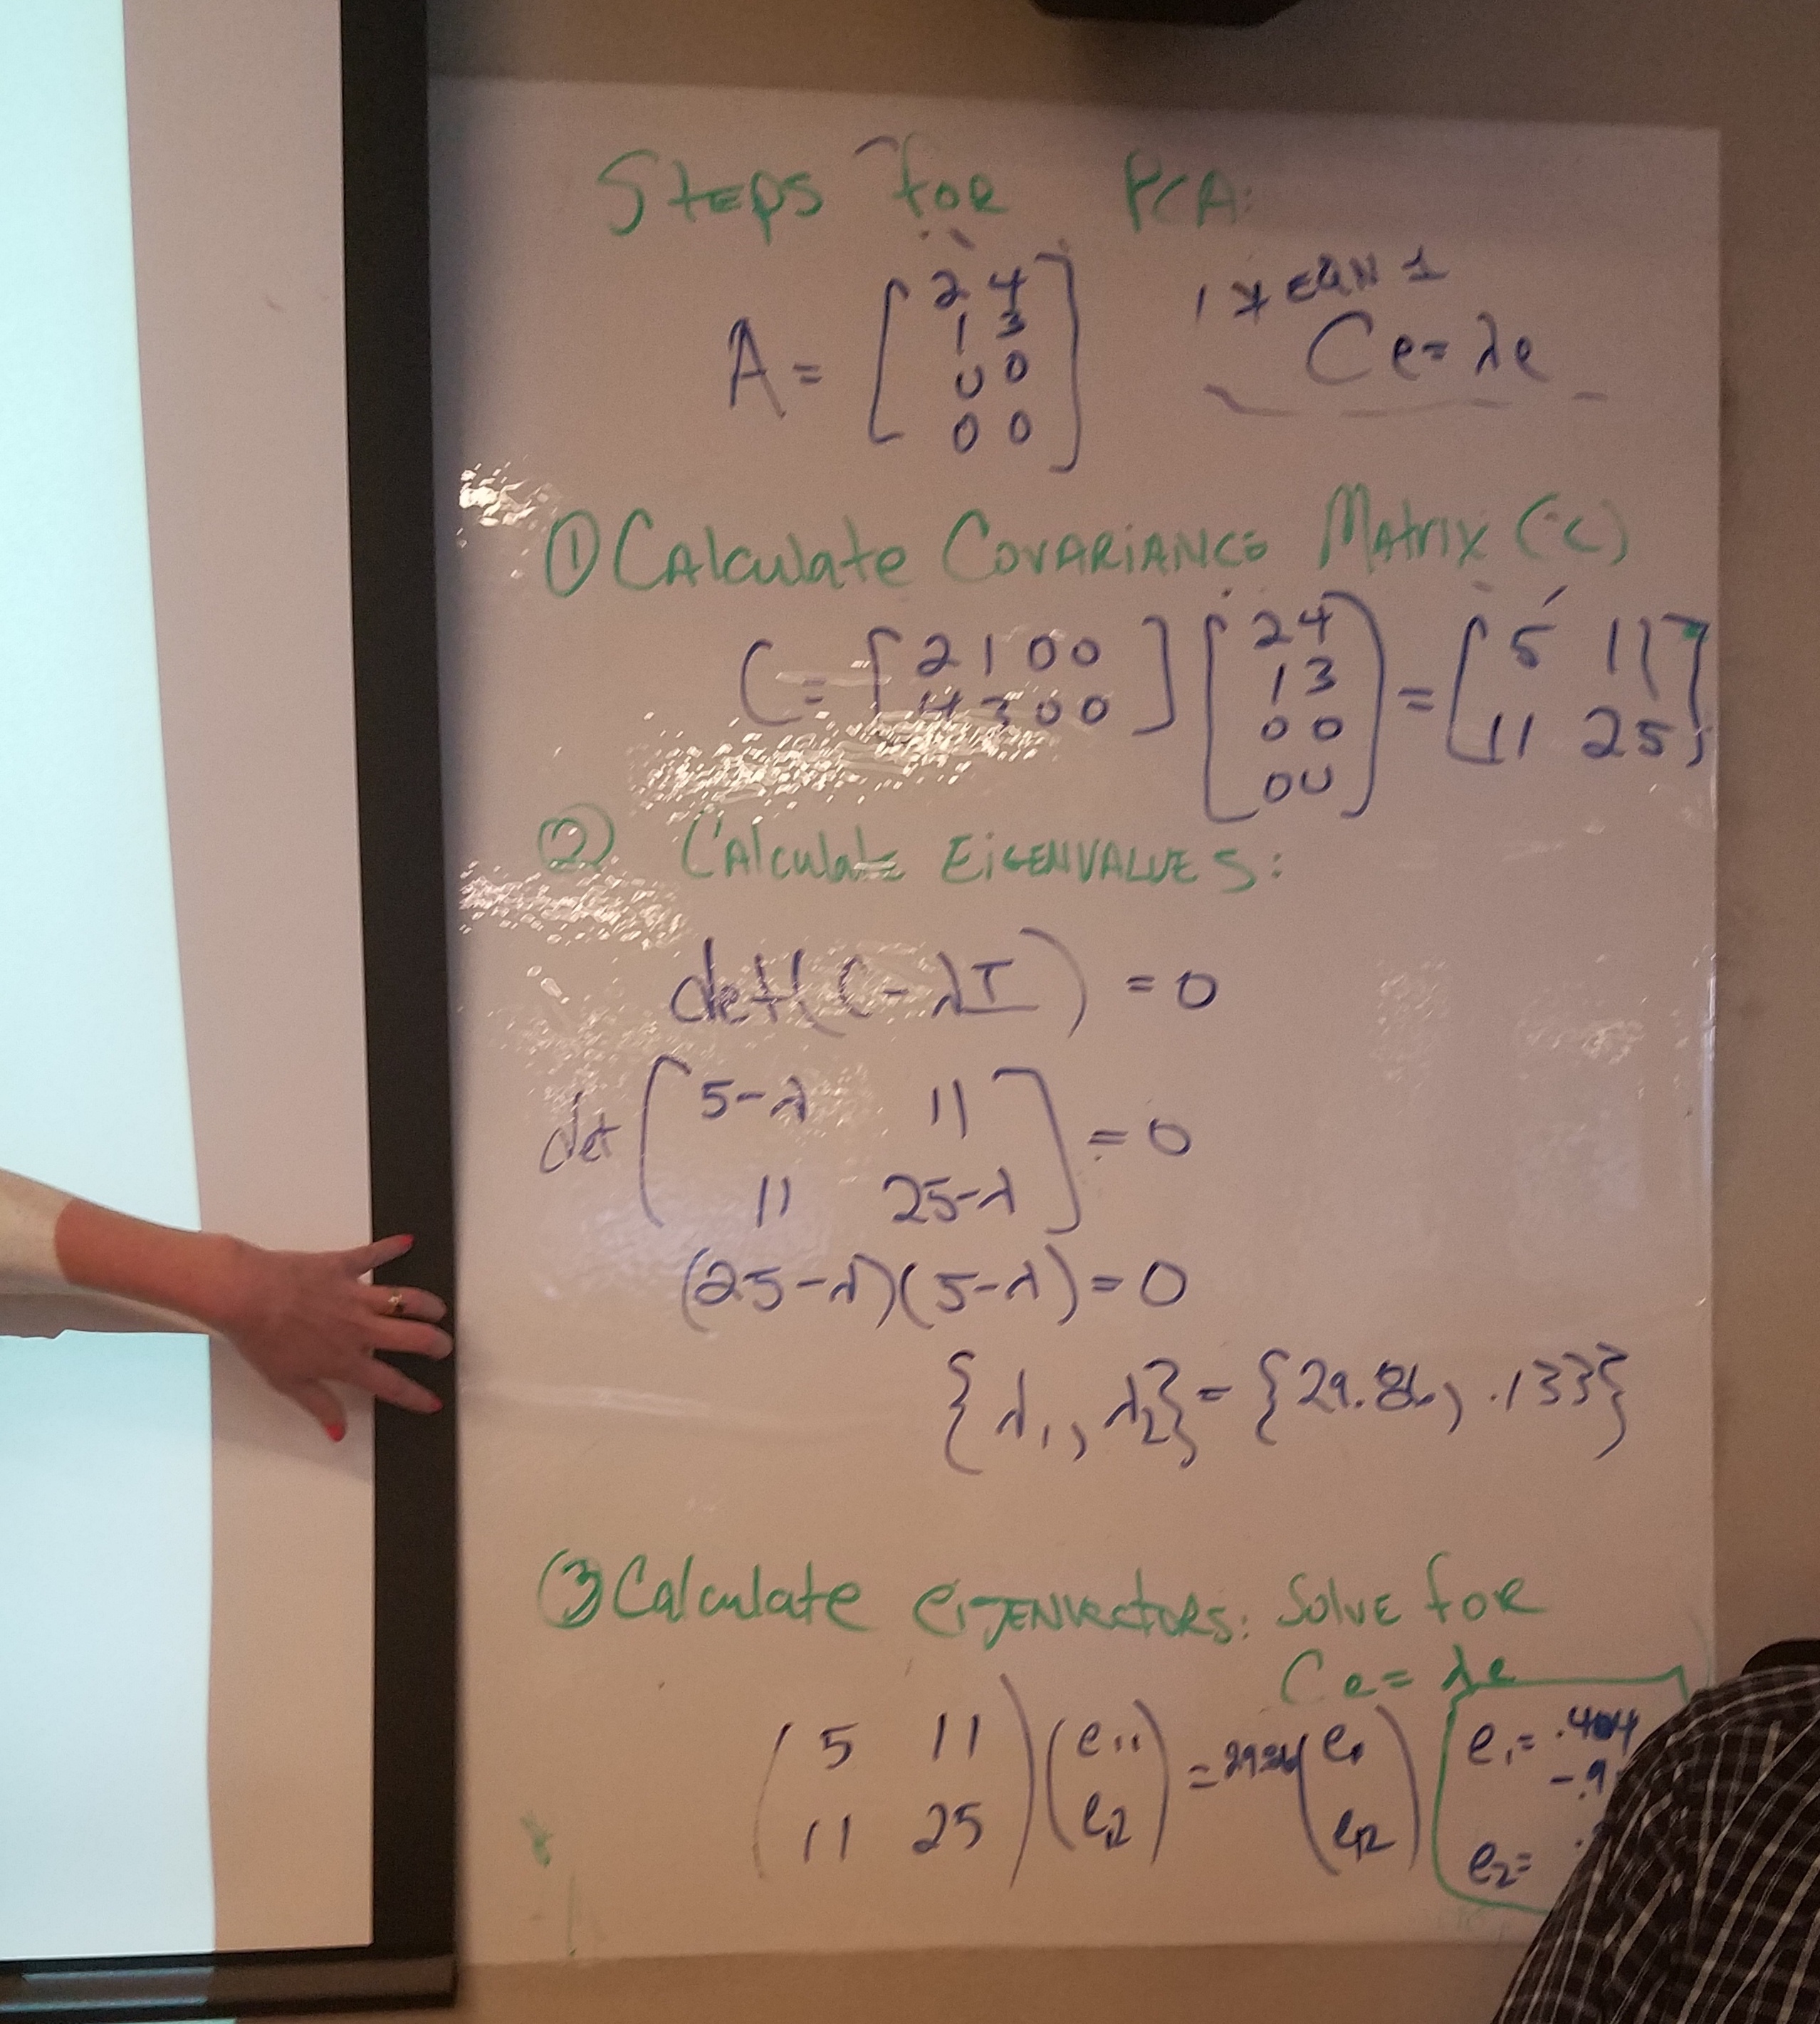 Steps for PCA:
A = [2 4
1 3
0 0
0 0]
1 * EQN 1
Ce = λe
① Calculate Covariance Matrix (C)
C = [2 1 0 0
4 3 0 0] [2 4
1 3
0 0
0 0] = [5 11
11 25]
② Calculate Eigenvalues:
det(C - λI) = 0
det [5-λ 11
11 25-λ] = 0
(25-λ)(5-λ) = 0
{λ1, λ2} = {29.86, .133}
③ Calculate eigenvectors: Solve for
Ce = λe
(5 11
11 25) (e11
e12) = 29.86 (e11
e12)
e1 = .404
-.9
e2 =